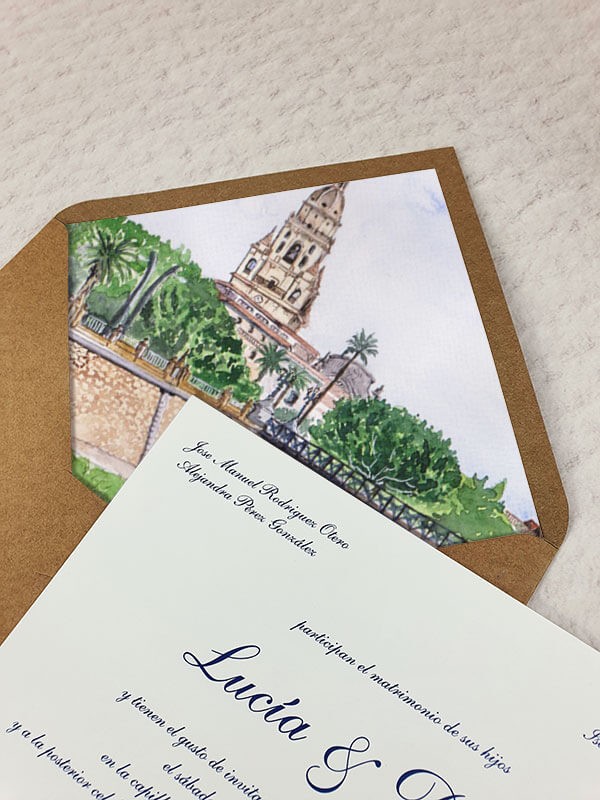 Jose Manuel Rodriguez Otero
Alejandra Pérez González
participan el matrimonio de sus hijos
Lucía &
y tienen el gusto de
en la
el sábado
y a la posterior